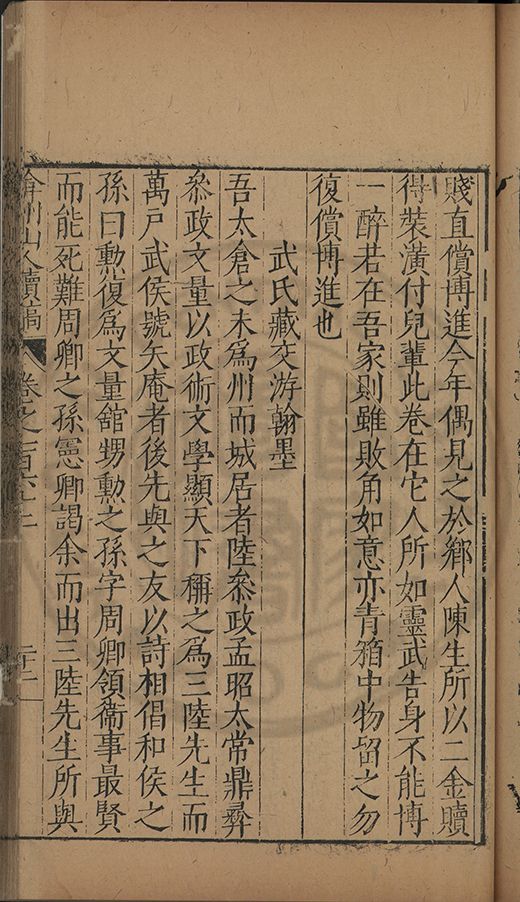 賤直償博進今年偶見之於鄉人陳生所以二金贖
得裝潢付兒輩此卷在它人所如靈武告身不能博
一醉若在吾家則雖敗角如意亦青箱中物留之勿
復償博進也
武氏藏交游翰墨
吾太倉之未爲州而城居者陸叅政孟昭太常鼎彛
叅政文量以政術文學顯天下稱之爲三陸先生而
萬戸武侯號矢庵者後先與之友以詩相倡和侯之
孫曰勲復爲文量舘甥勲之孫字周卿領衞事最賢
而能死難周卿之孫憲卿謁余而出三陸先生所與
弇州山人續稿 卷之一百六十二 二十二